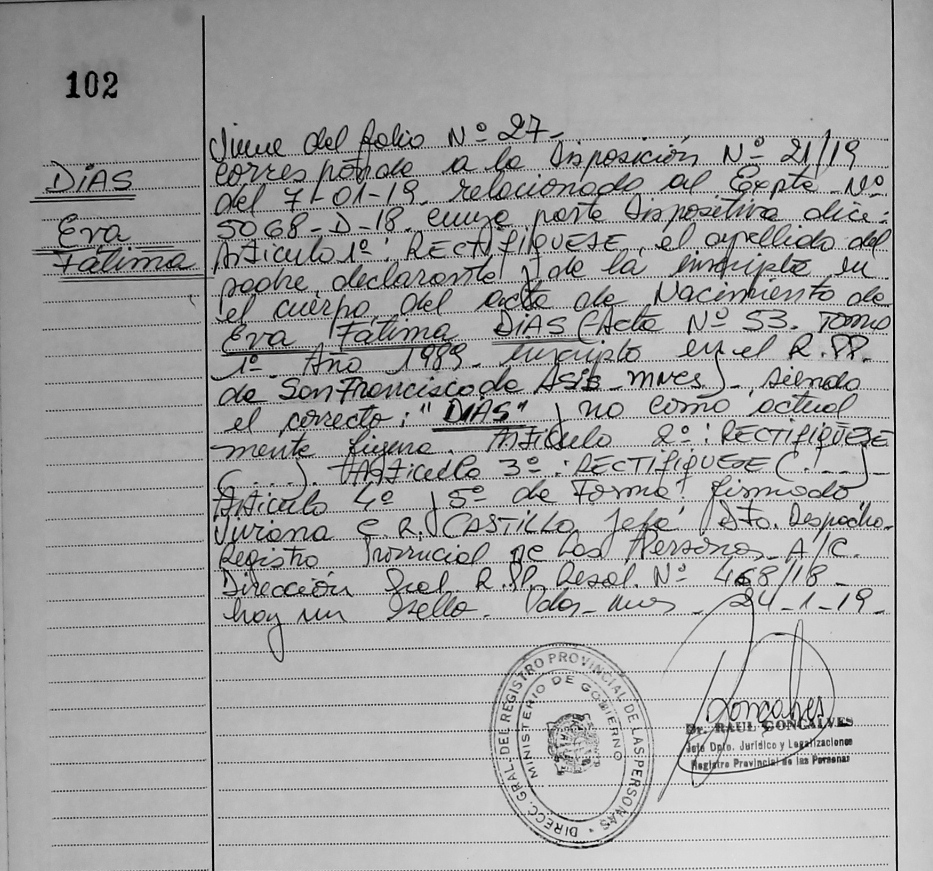 102
DIAS
Eva
Fátima
Viene del folio Nº 27-
corresponde a la Disposición Nº 21/19
del 7-01-19 relacionado al Expte Nº
5068-D-18 cuya parte Dispositiva dice:
Artículo 1º: RECTIFIQUESE, el apellido del
padre, declarante y de la inscripta en
el cuerpo del acta de Nacimiento de
Eva Fátima DIAS (Acta Nº 53. Tomo
1º Año 1989 inscripto en el R.PP.
de San Francisco de Asis - Mnes) - siendo
el correcto: "DIAS" y no como actual
mente figura. Artículo 2º: RECTIFIQUESE
(....). Artículo 3º: RECTIFIQUESE (....)-
Artículo 4º y 5º de Forma: firmado
Viviana E. R. CASTILLO Jefa Dto. Despacho-
Registro Provincial de las Personas A/C.
Dirección Gral R.PP. Resol. Nº 468/18-
hay un sello. Pdas-Mnes 24-1-19-
DIRECC. GRAL. DEL REGISTRO PROVINCIAL DE LAS PERSONAS
MINISTERIO DE GOBIERNO
Dr. RAUL GONCALVES
Jefe Dpto. Jurídico y Legalizaciones
Registro Provincial de las Personas